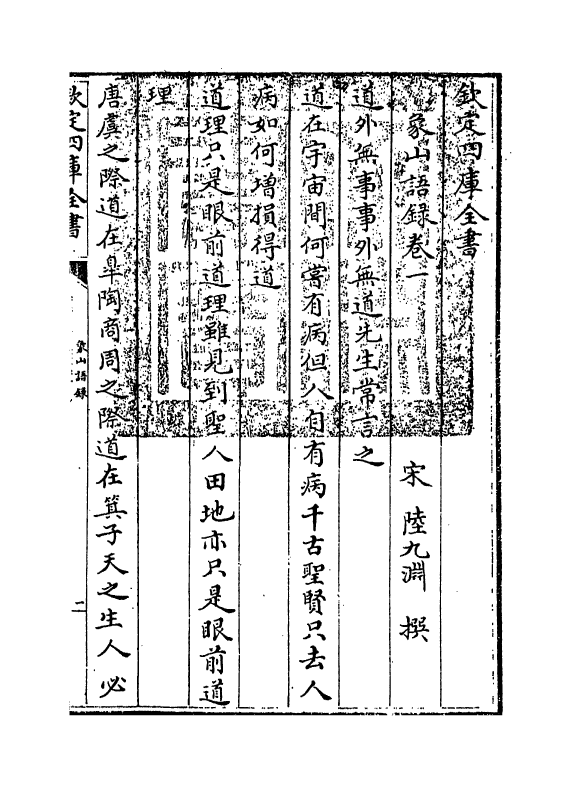 欽定四庫全書
象山語録卷一
宋 陸九淵 撰
道外無事事外無道先生常言之
道在宇宙間何嘗有病但人自有病千古聖賢只去人
病如何增損得道
道理只是眼前道理雖見到聖人田地亦只是眼前道
理
唐虞之際道在臯陶商周之際道在箕子天之生人必
欽定四庫全書
象山語録